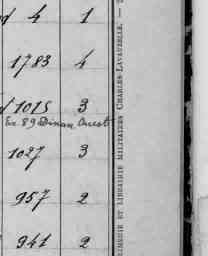 4 1
1783 4
1015 3
Ex 89 Dinan Ouest
1027 3
957 2
941 2
IMERIE ET LIBRAIRIE MILITAIRES CHARLES-LAVAUZELLE. —